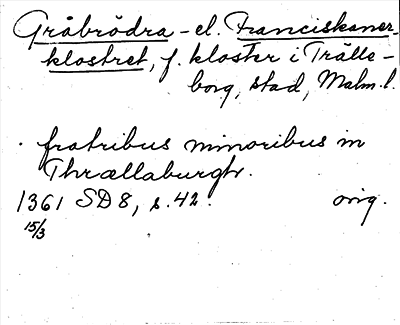 Gråbrödra- el. Franciskaner-
klostret, f. kloster i Trälle-
borg, stad, Malm. l.
fratribus minoribus in
Thrællaburgh.
1361 SD 8, s. 42. orig.
15/3